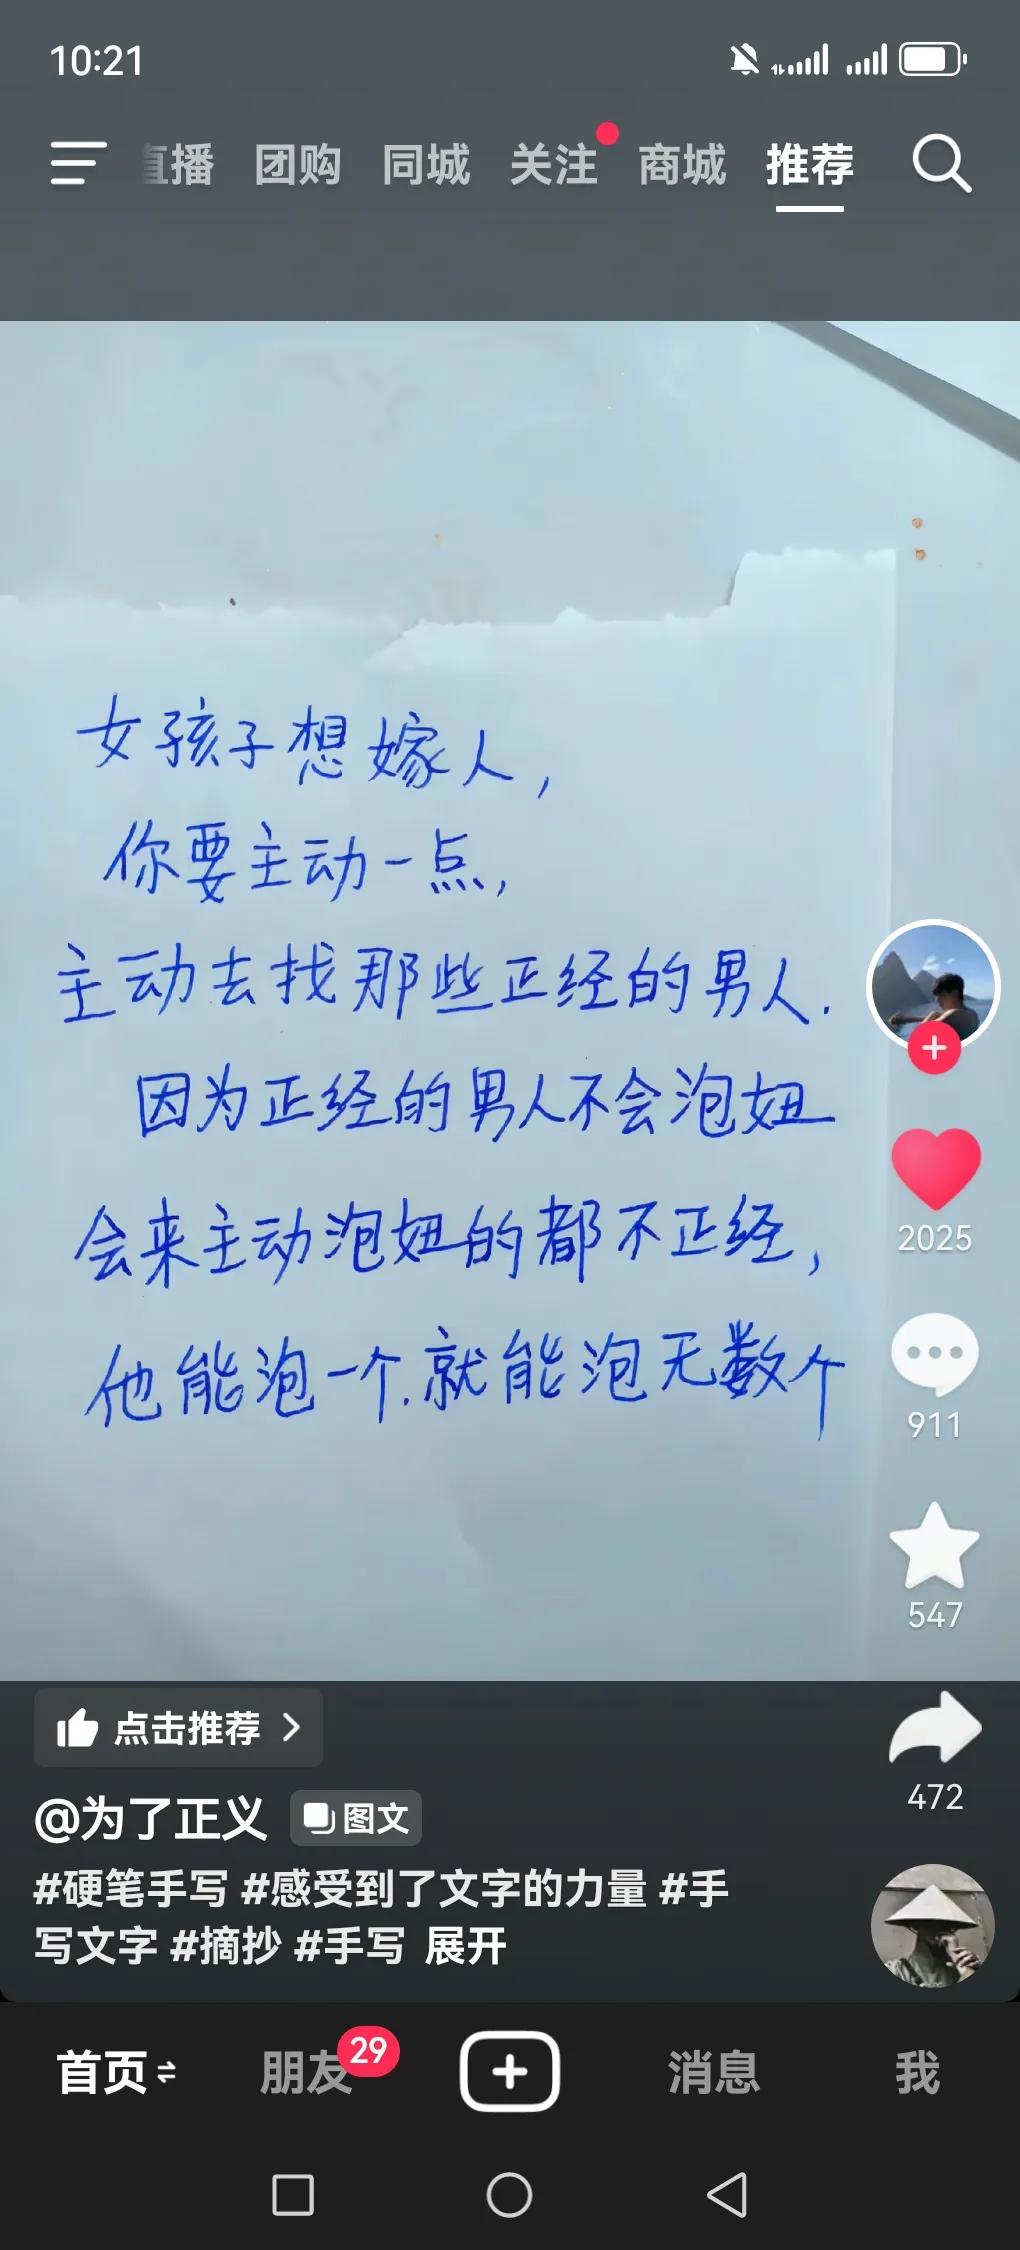 10:21
直播 团购 同城 关注 商城 推荐
女孩子想嫁人，
你要主动一点，
主动去找那些正经的男人.
因为正经的男人不会泡妞
会来主动泡妞的都不正经，
他能泡一个.就能泡无数个
2025
911
547
472
点击推荐
@为了正义 图文
#硬笔手写 #感受到了文字的力量 #手
写文字 #摘抄 #手写 展开
首页 朋友 29 消息 我